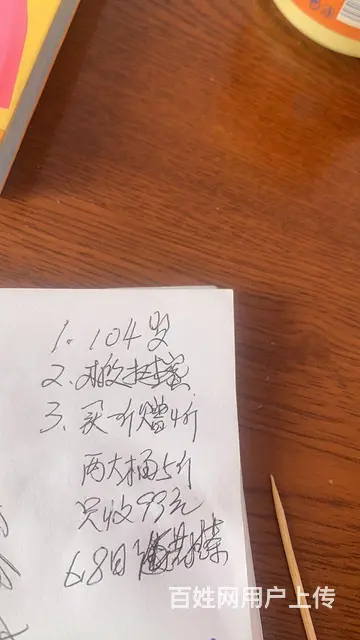 1. 104岁
2. 搬
3. 买一斤赠4斤
两大桶5斤
只收93元
6.8日
百姓网用户上传